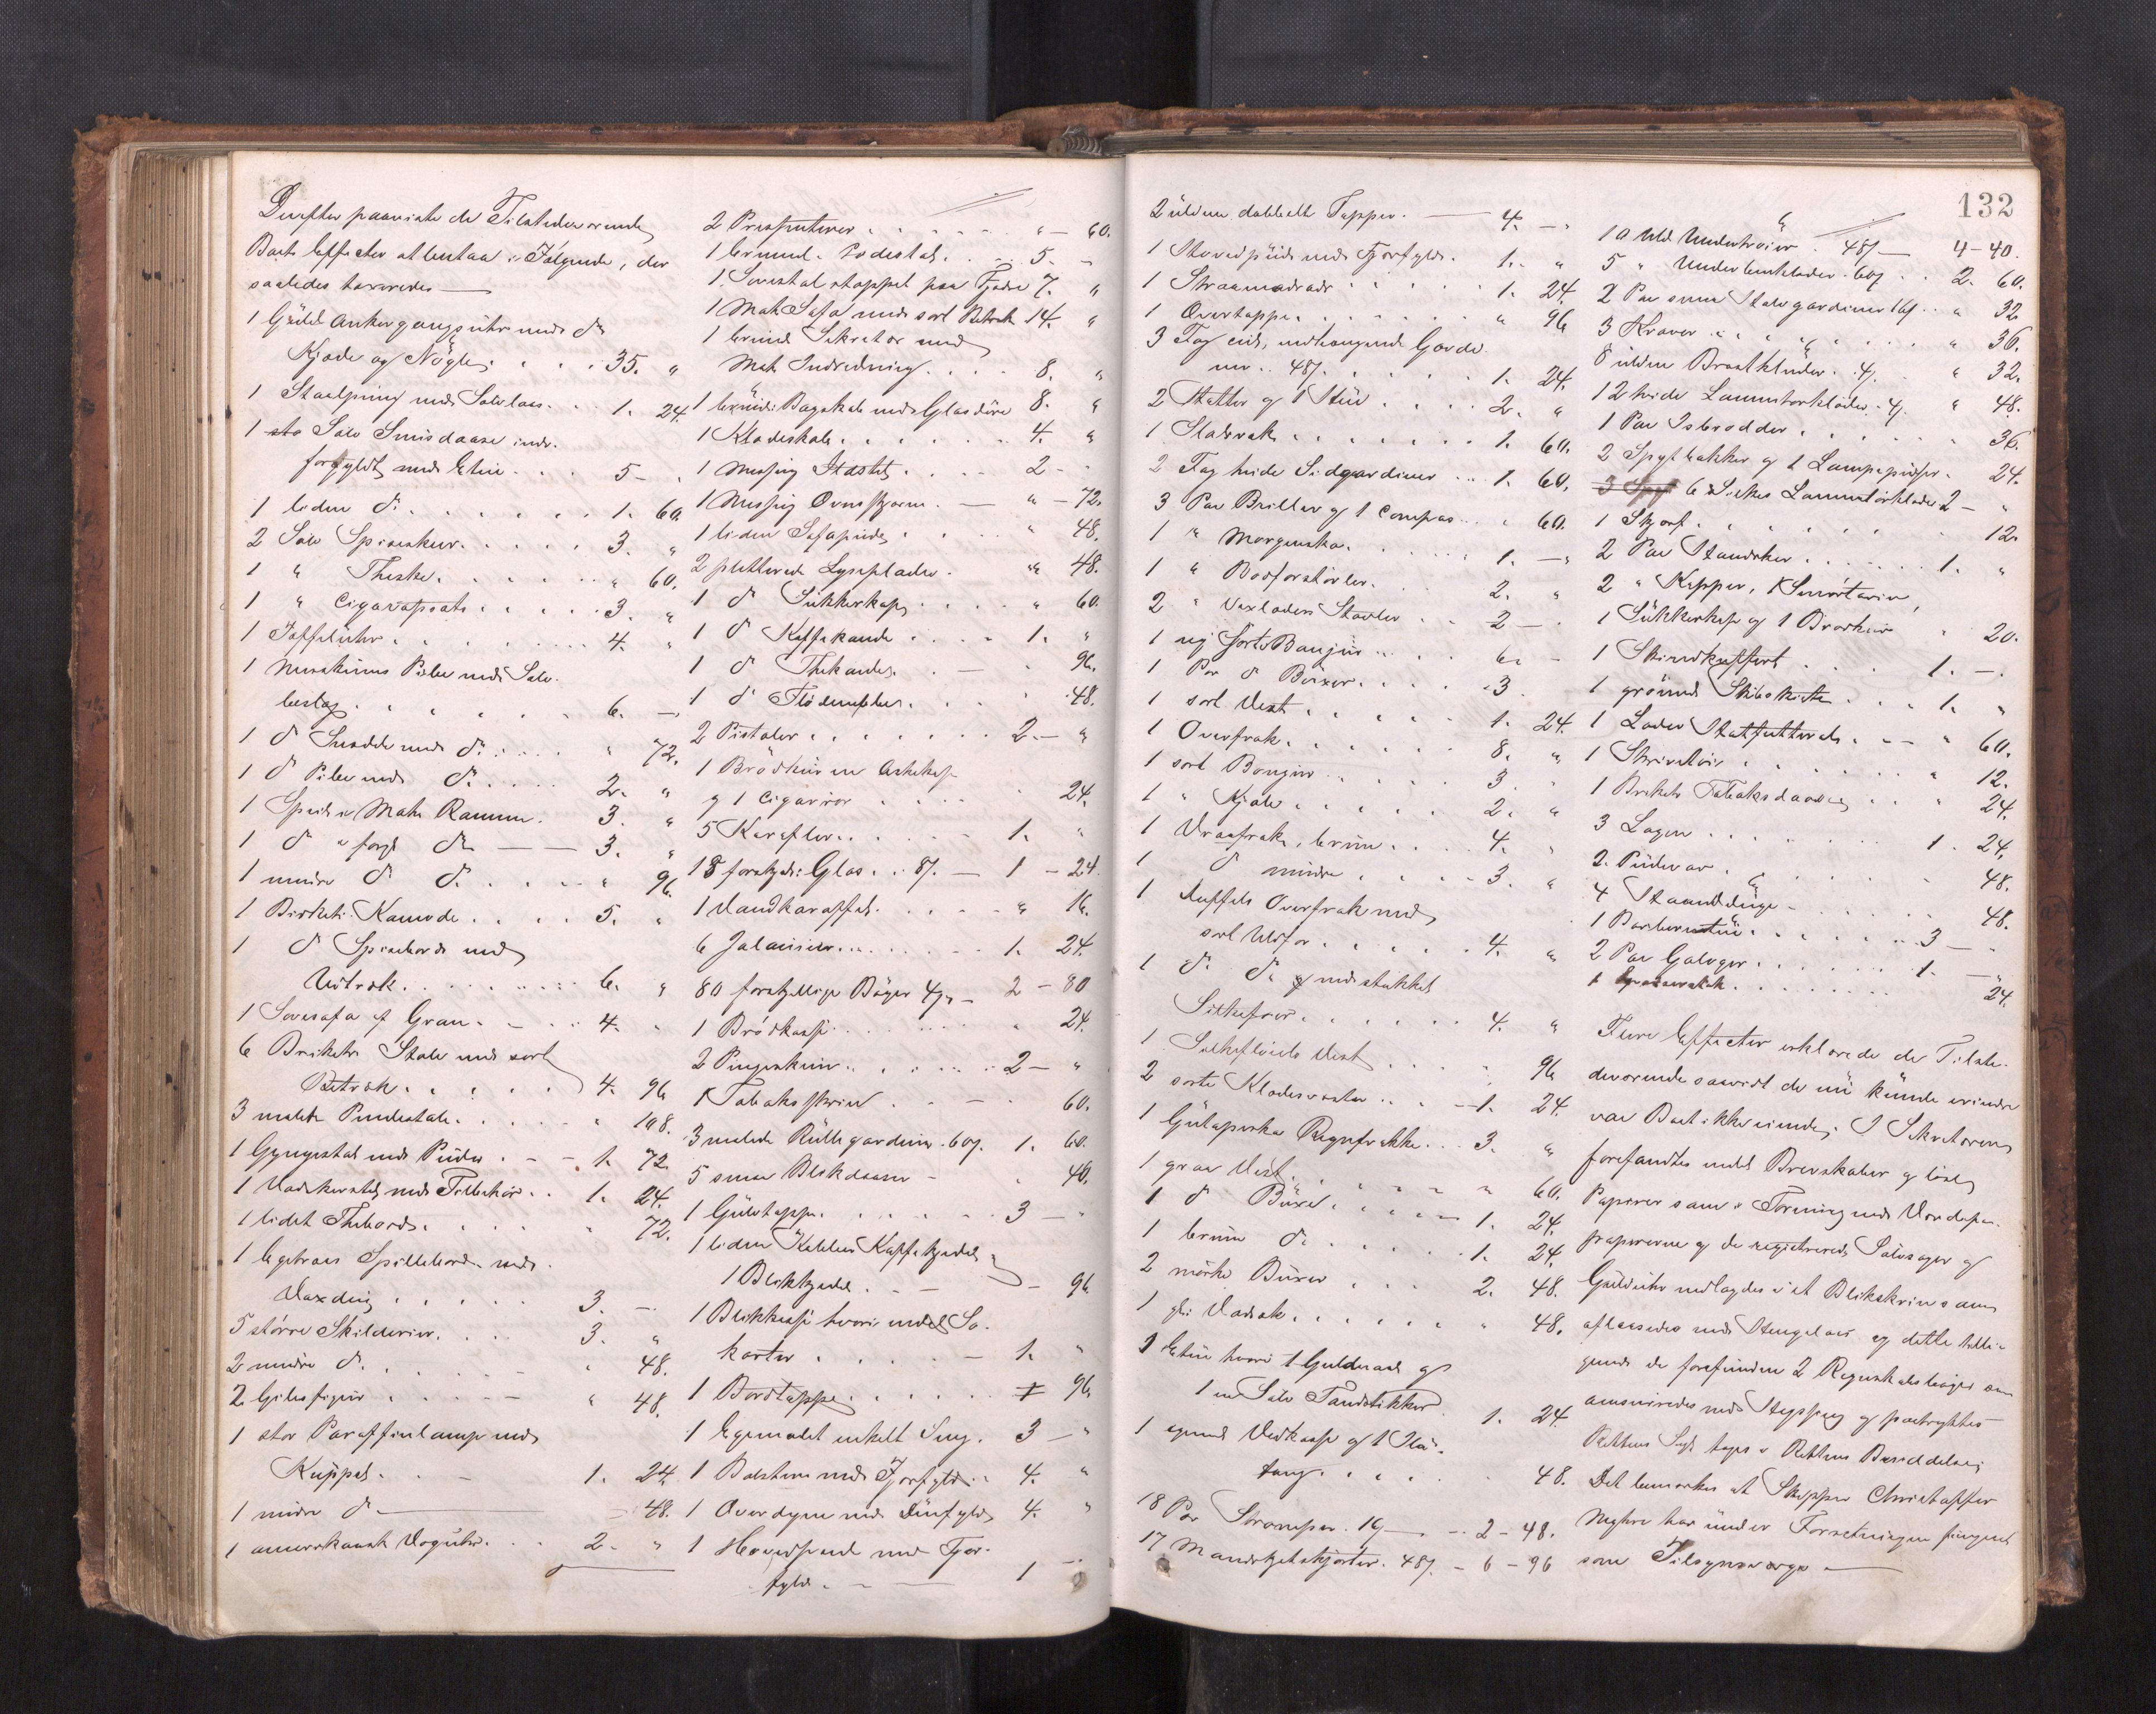 Derefter paaviste de Tilstedeværende
Boets Effecter at bestaa i Følgende, der
saaledes taxeredes —
1 Guld Ankergangsuhr med do
Kjæde og Nøgle . . . 35. "
1 Staalpung med Sølvlaas . . 1. 24.
1 Sølv Snusdaase indv.
forgyldt med Etui . . 5 - .
1 liden do . . . . 1. 60.
2 Sølv Spiseskeer . . . . 3. "
1 " Theske . . . . " 60.
1 " Cigarspids . . . . 3. "
1 Taffeluhr . . . . 4. "
1 Merskums Pibe med Sølv-
beslag . . . . 6. —
1 do Snadde med do . . . " 72.
1 do Pibe med do . . . . 2. "
1 Speil i Mah. Ramme . 3. "
1 do i forgt do — — 3. "
1 mindre do do . . . . " 96.
1 Birketr. Komode . . . . 5. "
1 do Spisebord med
Udtræk . . . . 6. "
1 Sovesofa af Gran . - . . 4. "
6 Birketr. Stole med sort
Betræk . . . . 4. 96
3 malte Pindestole . . . . " 108.
1 Gyngestol med Pude . - - 1. 72.
1 Vaskerstel med Tilbehør . . 1. 24.
1 lidet Thebord . . . . " 72.
1 Egetræes Spillebord med
Voxdug . . . . 3. —
5 større Skilderier . . . 3. "
2 mindre do . . . " 48.
2 Gibsfigurer . . . . " 48.
1 stor Paraffinlampe med
Kuppel . . - 1. 24.
1 mindre do — - 48.
1 amerikansk Væguhr . . . 2. "
2 Præsenterer . . . . " — 60.
1 brunmal. Podestal . . . 5. -
1 Lænestol stoppet paa Fjædre 7. "
1 Mah. Sofa med sort Betræk 14. "
1 brunt Sekretær med
Mah. Indredning . . . . 8. "
1 brunt Bogskab med Glasdøre 8. "
1 Klædeskab . . . . 4. "
1 Messing . . . . 2 - -
1 Messing Ovnsskjærm . — " — 72.
1 liden Sofapude . . . " 48.
2 pletterede Lyseplader . " 48.
1 do Sukkerkop . . . . " 60.
1 do Kaffekande . . . . 1. "
1 do Thekande . . — " 96.
1 do Flødemugge . . . " 48.
2 Pistoler . . . . 2 — "
1 Brødkurv en Askekop
og 1 Cigarrør . . . . " 24.
5 Karafler . . . . - 1. "
18 forskjell: Glas . . 8/. — 1 - 24
1 Vandkaraffel . . . . " 16.
6 Jalousier . . . . 1. 24.
80 forskjellige Bøger 4/. - 2 - 80
1 Brødkasse . . . . " 24.
2 . . . . 2 — "
1 Tobaksskrin . . — . 60.
3 malede Rullegardiner . 60/. 1. 60.
5 smaa Blikdaaser - " 40.
1 Gulvtæppe . . . . 3 — "
1 liden Kobber Kaffekjedel og
1 Blikkjedel . . - — - 96
1 Blikkasse hvori endel Sø-
karter . . . . — 1. "
1 Bordtæppe . . . . 96
1 Egemalet enkelt Seng . 3 — "
1 Bolster med Fjærfyld . . 4. "
1 Overdyne med Duunfyld 4. "
1 Hovedpude med Fjær-
fyld . - - — 1 —
132
2 uldne dobbelt Tæpper . — 4. — "
1 Hovedpude med Fjærfyld . 1. "
1 Straamadrads . . . . 1. 24.
1 Overtæppe . . . . " 96
3 Fag nedhængende Gardi-
ner . . 48/. . . . 1. 24.
2 Hatter og 1 Hue . . . . 2. "
1 Slobrok . . . . 1. 60.
2 Fag hvide Sidgardiner . . . 1. 60.
3 Par Briller og 1 Compas . . " 60.
1 " Morgensko . . . . 1. — "
1 " Bedforstøvler . . . . 2. "
2 " Støvler . . 2 — "
1 ny sort Bonjour . . . . 6. -
1 Par do Buxer . . . . 3 .
1 sort Vest . . . . 1. 24.
1 Overfrak . . . . 8. "
1 sort Bonjour . . . . 3 "
1 " Kjole . . . . 2. "
1 Vraafrak, brun . . . . 4. "
1 do mindre . . . . 3. "
1 Duffels Overfrak med
sort Uldfor . . . . 4. "
1 do do med stukket
Silkefoer . . . . 4. "
1 Silkefløiels Vest . . . . " 96
2 sorte Klædesveste . . . 1. 24.
1 Gutaperka Regnfrakke . . 3. "
1 graa Vest . . . . " 60.
1 do Buxe . . . . 1. 24.
1 brun do . . . . 1. 24.
2 mørke Buxer . . . 2. 48.
1 gl: Vadsæk . . . . " 48.
1 Etui hvori 1 og
1 en Sølv Tandstikker . 1. 24.
1 Vedkasse og 1 Ild-
tang . . . . " 48.
18 Par Strømper . 16/. — . . 2 - 48.
17 Mandskjolskjorter . 48/. - 6 - 96
10 Uld Undertrøier . 48/. — 4 - 40.
5 " Underbenklæder . 60/. . . 2. 60.
2 Par smaa Halvgardiner 16/. . . " 32
3 Kraver . . . . " 36.
8 uldne Brystkluder . 4/. " 32.
12 hvide Lommetørklæder . 4/. " 48.
1 Par Isbrodder . . . . " 36.
2 Spytbakker og 1 Lampepudser . 24.
6 Silkes Lommetørklæder 2 — "
1 Skjærf . . . . 12.
2 Par Handsker . . . . 1. "
2 " Kopper, 1 Smørtærin,
1 Sukkerkop og 1 Brødkurv " 20.
1 Skindkuffert . . . . 1. — .
1 grønmal. Skibskiste . . . 1. "
1 Læder Hatfutteral . . — " 60.
1 Skrivetøi . . . . " 12.
1 Birketr. Tobaksdaase . . " 24.
3 Lagen . . . . 1. 24.
2 Pudevar . . . . - 48.
4 Haandduge - . . . . 48.
1 Barberetui . . . . 3 — "
2 Par Galoger . . . . 1. — "
1 . . . . 24.
Flere Effecter erklærede de Tilste-
deværende saavidt de nu kunde erindre
var Boet ikke eiende. I Sekretæren
forefandtes endel Brevskaber og løse
Papirer som i Forening med Værdipa-
pirerne og de registrerede Sølvsager og
Guldühr nedlagdes i et Blikskrin som
aflaasedes med Hængelaas og dette tilli-
gemed de forefundne 2 Regnskabsbøger om
omsnøredes med Hyssing og paatryktes
Rettens Segl toges i Rettens Besiddelse.
Det bemærkes at Skipper Christoffer
har under Forretningen fungeret
som Tilsynsværge —